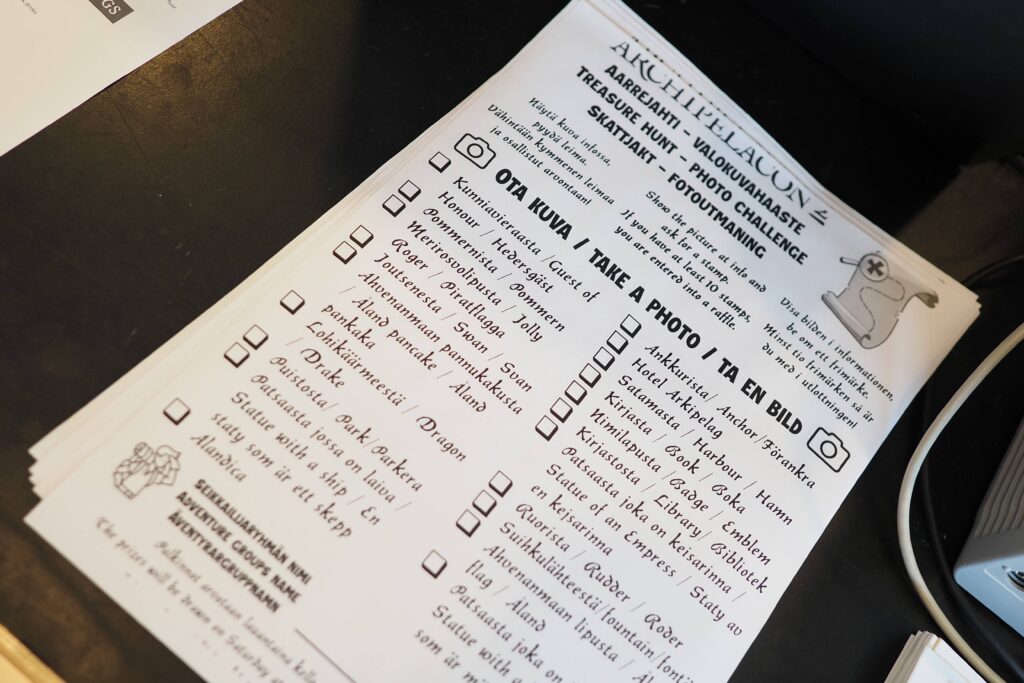 GS
ARCHIPELACON 2
AARREJAHTI – VALOKUVAHAASTE
TREASURE HUNT – PHOTO CHALLENGE
SKATTJAKT – FOTOUTMANING
Näytä kuva infossa,
pyydä leima.
Vähintään kymmenen leimaa
ja osallistut arvontaan!
Show the picture at info and
ask for a stamp.
If you have at least 10 stamps,
you are entered into a raffle.
Visa bilden i informationen,
be om ett frimärke.
Minst tio frimärken så är
du med i utlottningen!
OTA KUVA / TAKE A PHOTO / TA EN BILD
Kunniavieraasta / Guest of
Honour / Hedersgäst
Pommernista / Pommern
Merirosvolipusta / Jolly
Roger / Piratflagga
Joutsenesta / Swan / Svan
Ahvenanmaan pannukakusta
/ Åland pancake / Åland
pankaka
Lohikäärmeestä / Dragon
/ Drake
Puistosta/ Park/Parkera
Patsaasta jossa on laiva /
Statue with a ship / En
staty som är ett skepp
Alandica
Ankkurista/ Anchor/Förankra
Hotel Arkipelag
Satamasta / Harbour / Hamn
Kirjasta / Book / Boka
Nimilapusta / Badge / Emblem
Kirjastosta / Library/ Bibliotek
Patsaasta joka on keisarinna /
Statue of an Empress / Staty av
en kejsarinna
Ruorista / Rudder / Roder
Suihkulähteestä/fountain/font
Ahvenanmaan lipusta /
flag / Åland
Patsaasta joka on
Statue with a
som är
SEIKKAILURYHMÄN NIMI
ADVENTURE GROUPS NAME
ÄVENTYRARGRUPPNAMN
Palkinnot arvotaan lauantaina kello
The prizes will be drawn on Saturday